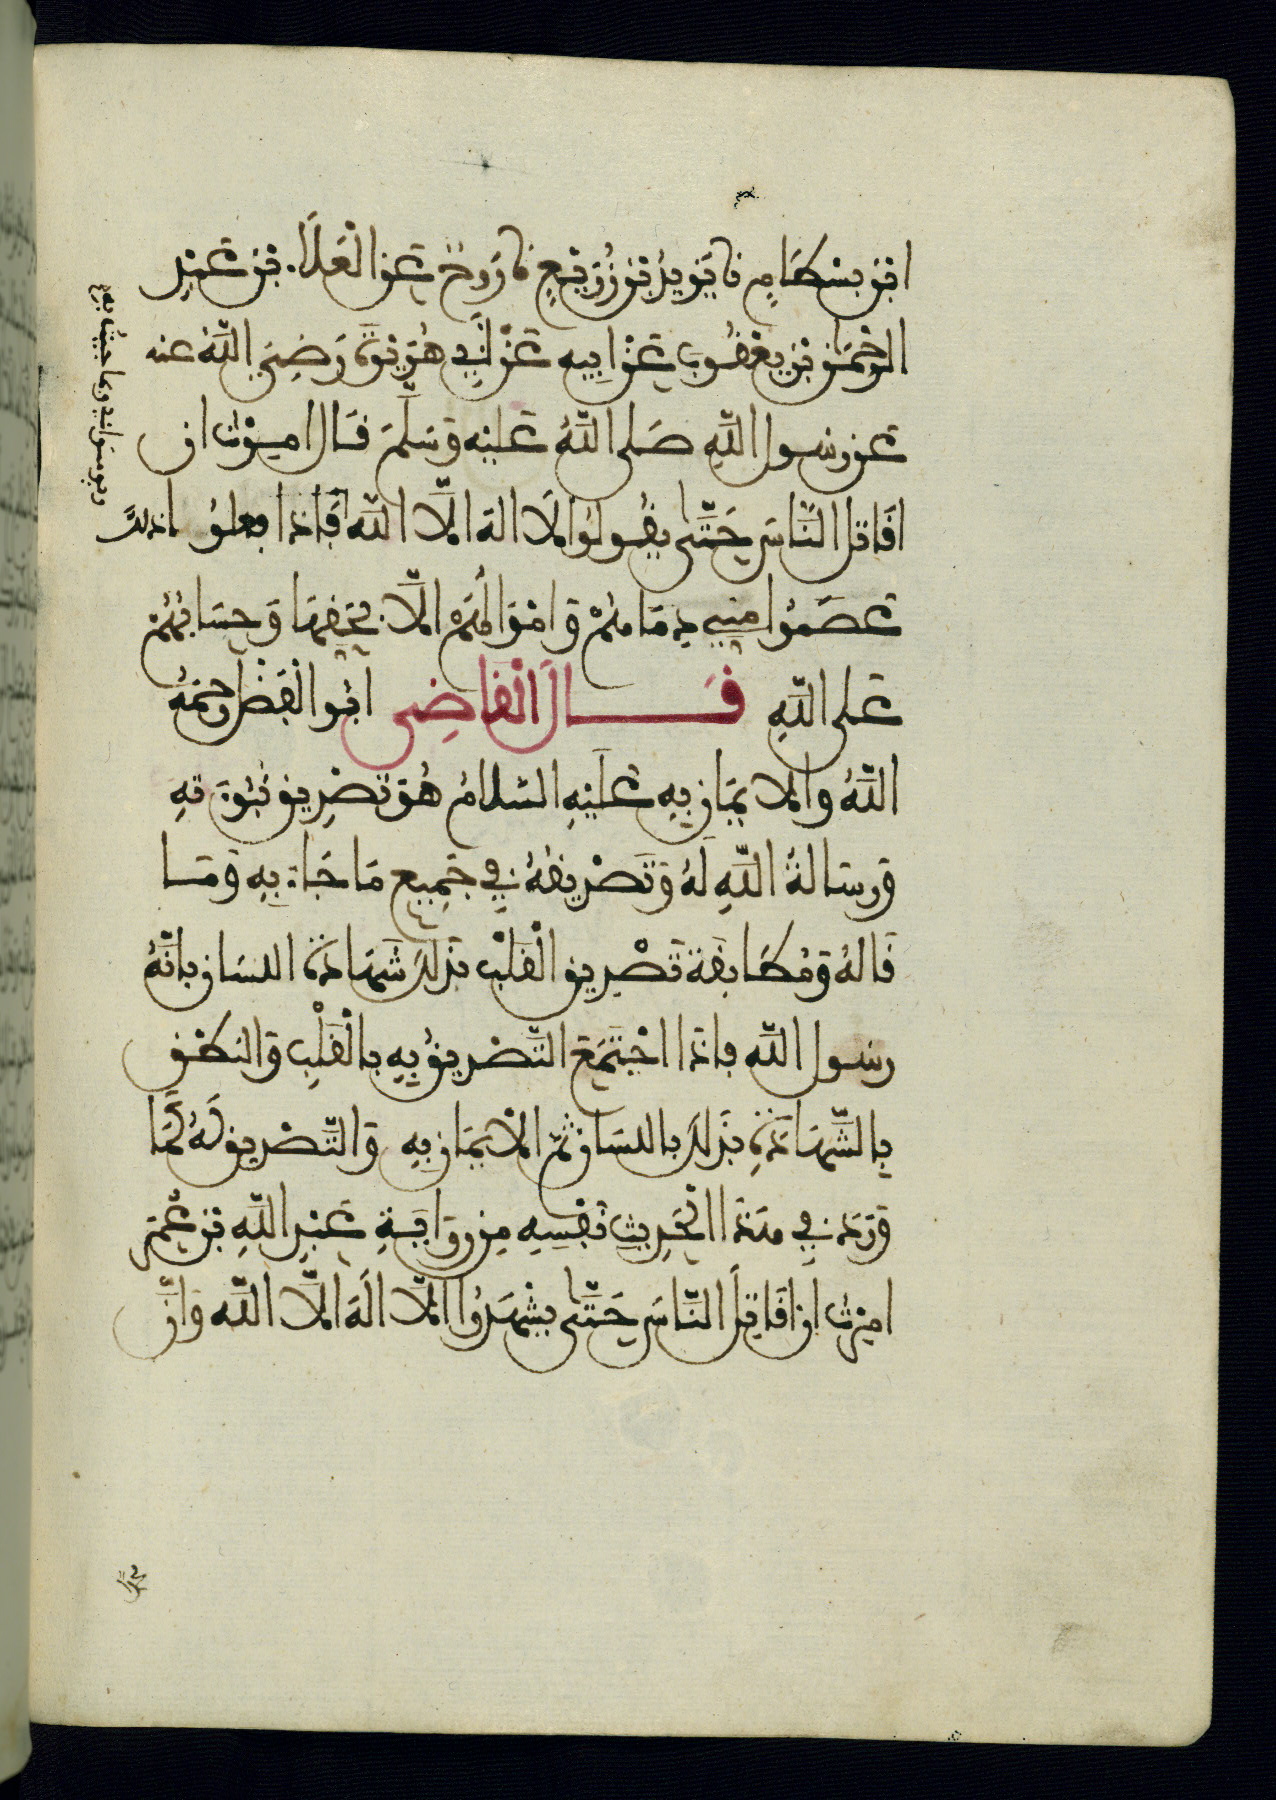 ابن بسطام نا يزيد بن زريع نا روح عن العلاء بن عبد
الرحمن بن يعقوب عن ابيه عن ابي هريرة رضي الله عنه
عن رسول الله صلى الله عليه وسلم قال امرت ان
اقاتل الناس حتى يقولوا لا اله الا الله فاذا فعلوا ذلك
عصموا مني دماءهم واموالهم الا بحقها وحسابهم
على الله قال القاضي ابو الفضل رحمه
الله والايمان به عليه السلام هو تصديق نبوته
ورسالة الله له وتصديقه في جميع ما جاء به وما
قاله ومطابقة تصديق القلب بذلك شهادة اللسان بانه
رسول الله فاذا اجتمع التصديق به بالقلب والنطق
بالشهادة بذلك باللسان تم الايمان به والتصديق له كما
ورد في هذا الحديث نفسه من رواية عبد الله بن عمر
امرت ان اقاتل الناس حتى يشهدوا الا اله الا الله وان
ويومنوا بي وبما جيت به